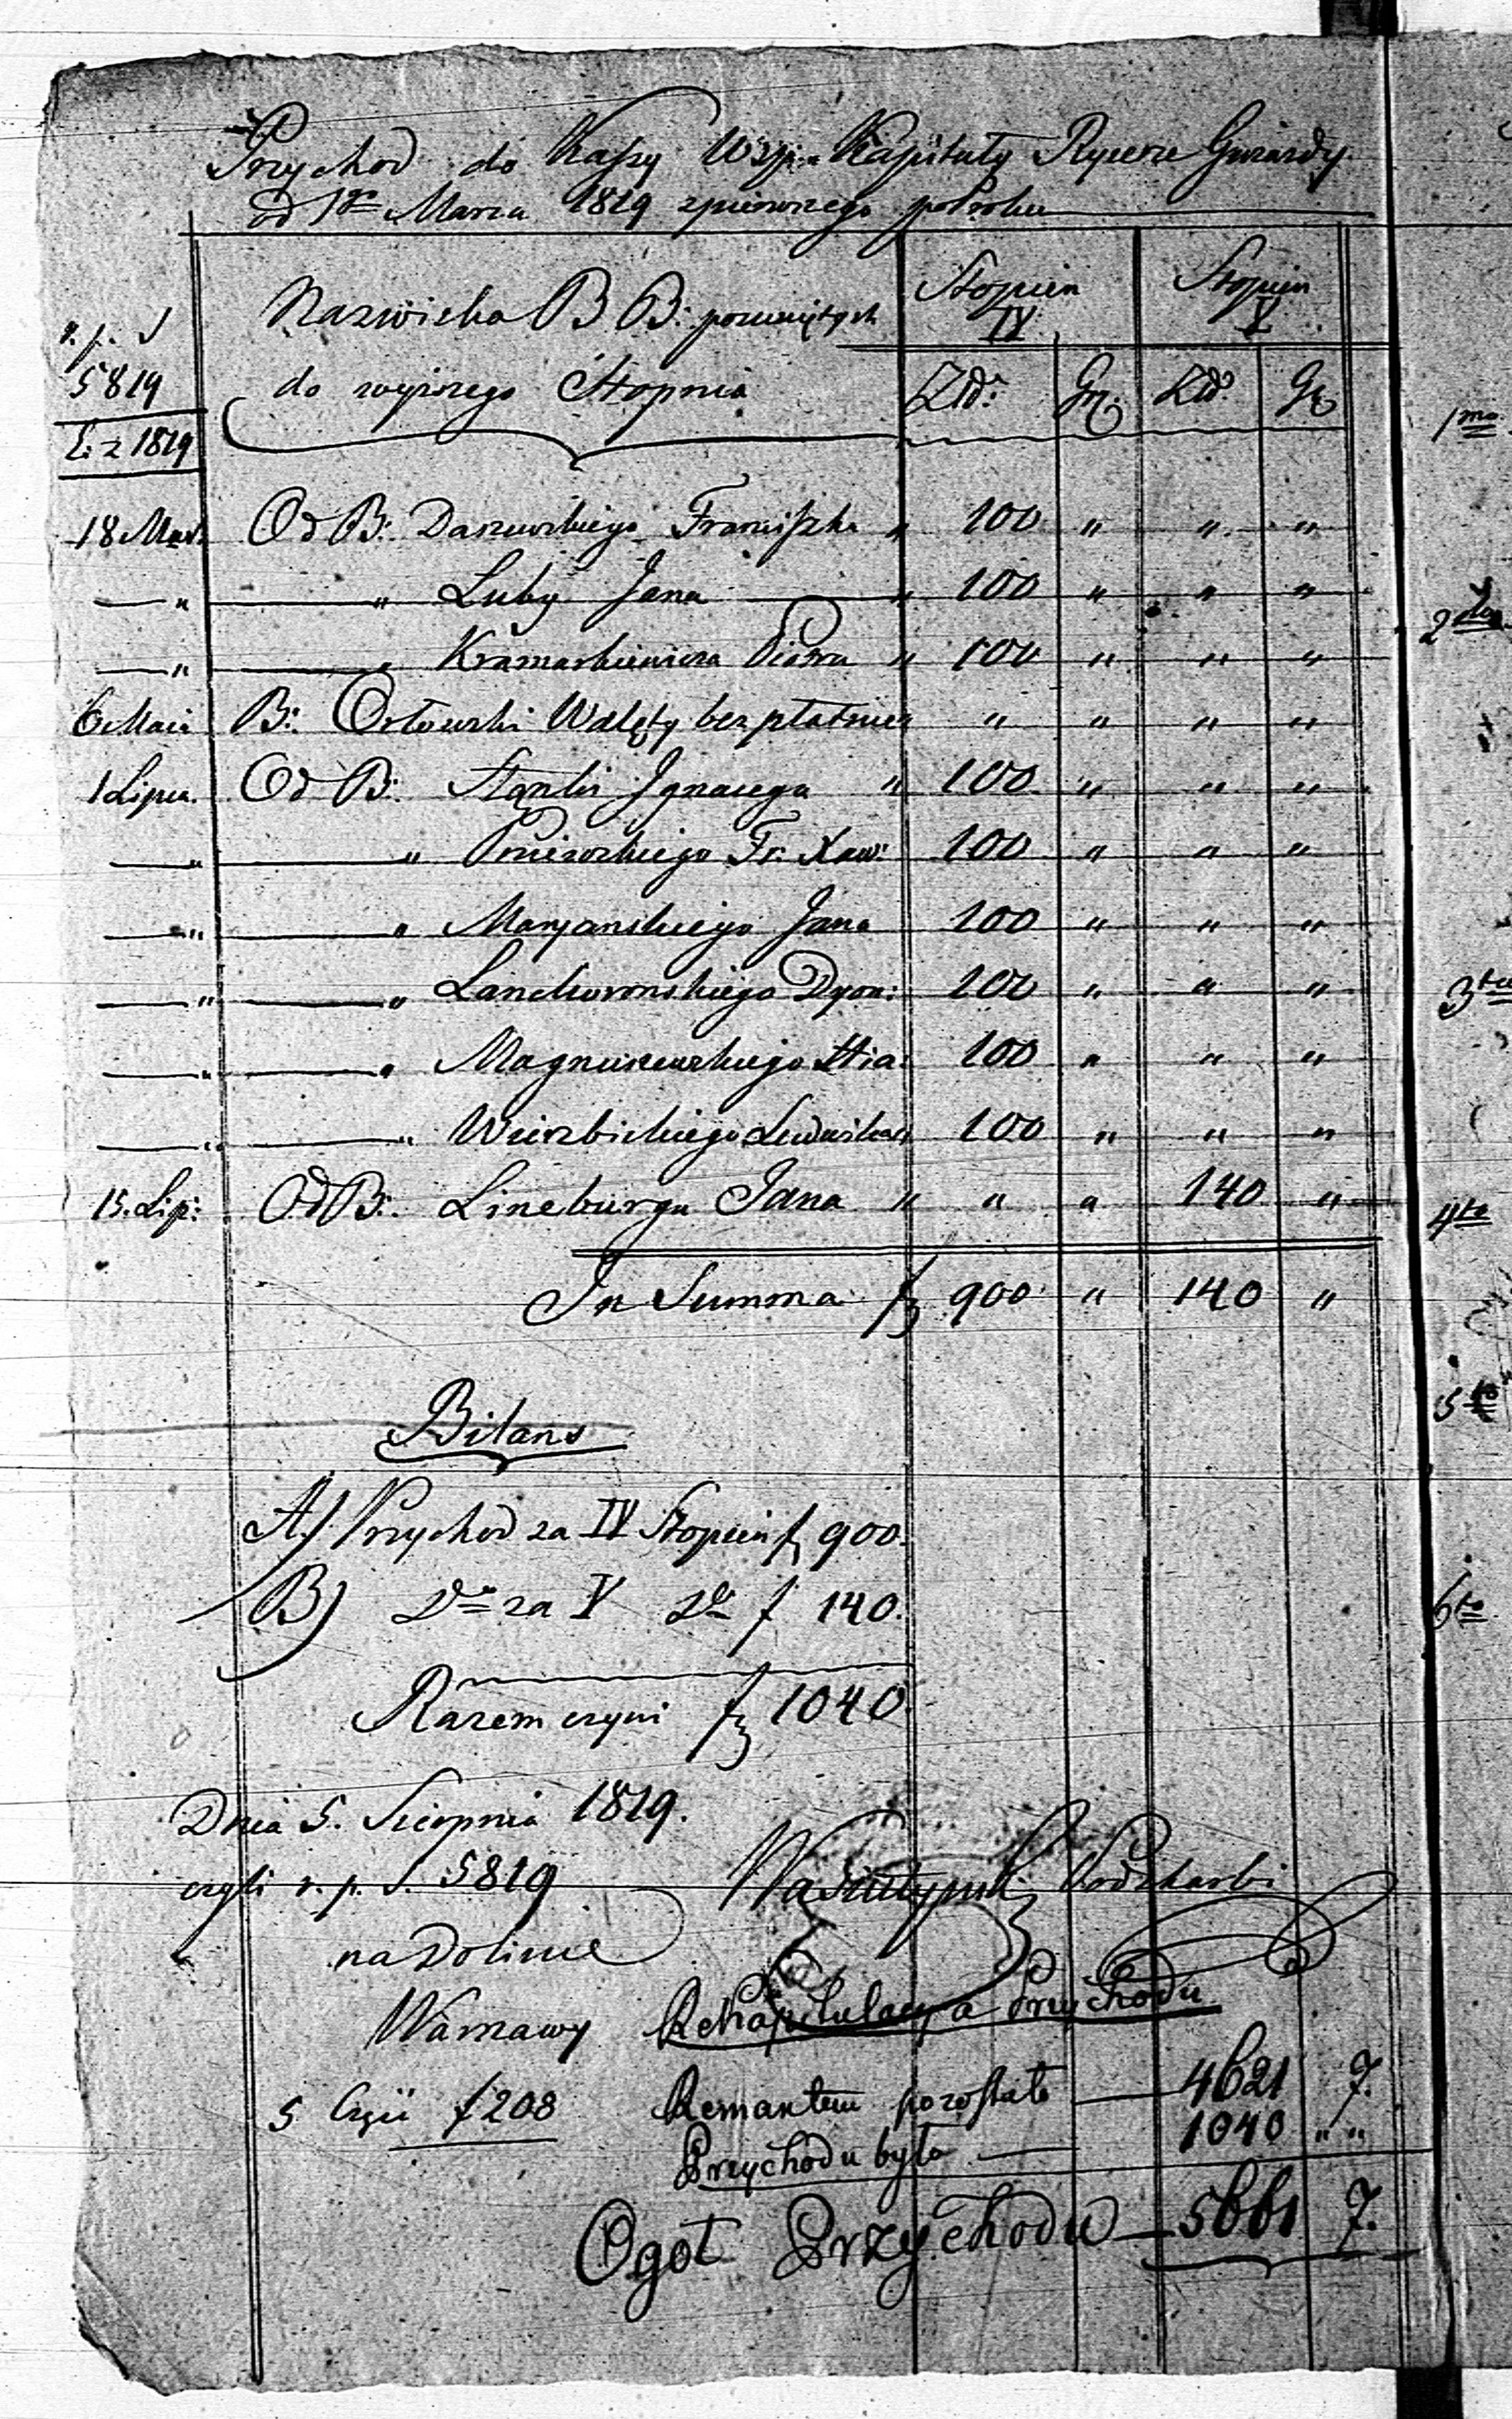 Przychod do Kassy Wyj. Kapituły Rycerz Gwiazdy
od 1go Marca 1819 z pierwszego połroku
r. p. S
5819
L: z 1819
Nazwiska B B: posuniętych
do wyższego Stopnia
Stopien IV Stopien V
Złd: Gr. Złd: Gr
18 Mar. Od B: Daszewskiego Franciszka " 100 " " "
— " — " Luby Jana — " 100 " " "
— " — " Kramarkiewicza Piotra " 100 " " "
6 Maia B: Orłowski Walęty bezpłatnie " " " " "
1 Lipca. Od B: Ignacego " 100 " " "
— " — " Fr: Xaw: 100 " " "
— " — " Maryanskiego Jana 100 " " "
— " — " Lanckoronskiego Dyon: 100 " " "
— " — " Magnuszewskiego Hia: 100 " " "
— " — " Wierzbickiego Ludwika 100 " " "
15. Lip: Od B: Lineburga Jana " " " 140 "
In Summa f 900 " 140 "
Bilans
A.) Przychod za IV Stopien f 900.
B) Do za V do f 140.
Razem czyni f 1040.
Dnia 5. Sierpnia 1819.
czyli r. p. S. 5819
na Dolinie
Warszawy
Podskarbi
Rekapitulacya Przychodu
5 Część f 208
Remanetu pozostało — 4621 7.
Przychodu było — 1040 " "
Ogoł Przychodu — 5661 7.
1mo
2do
3tio
4to
5to
6to